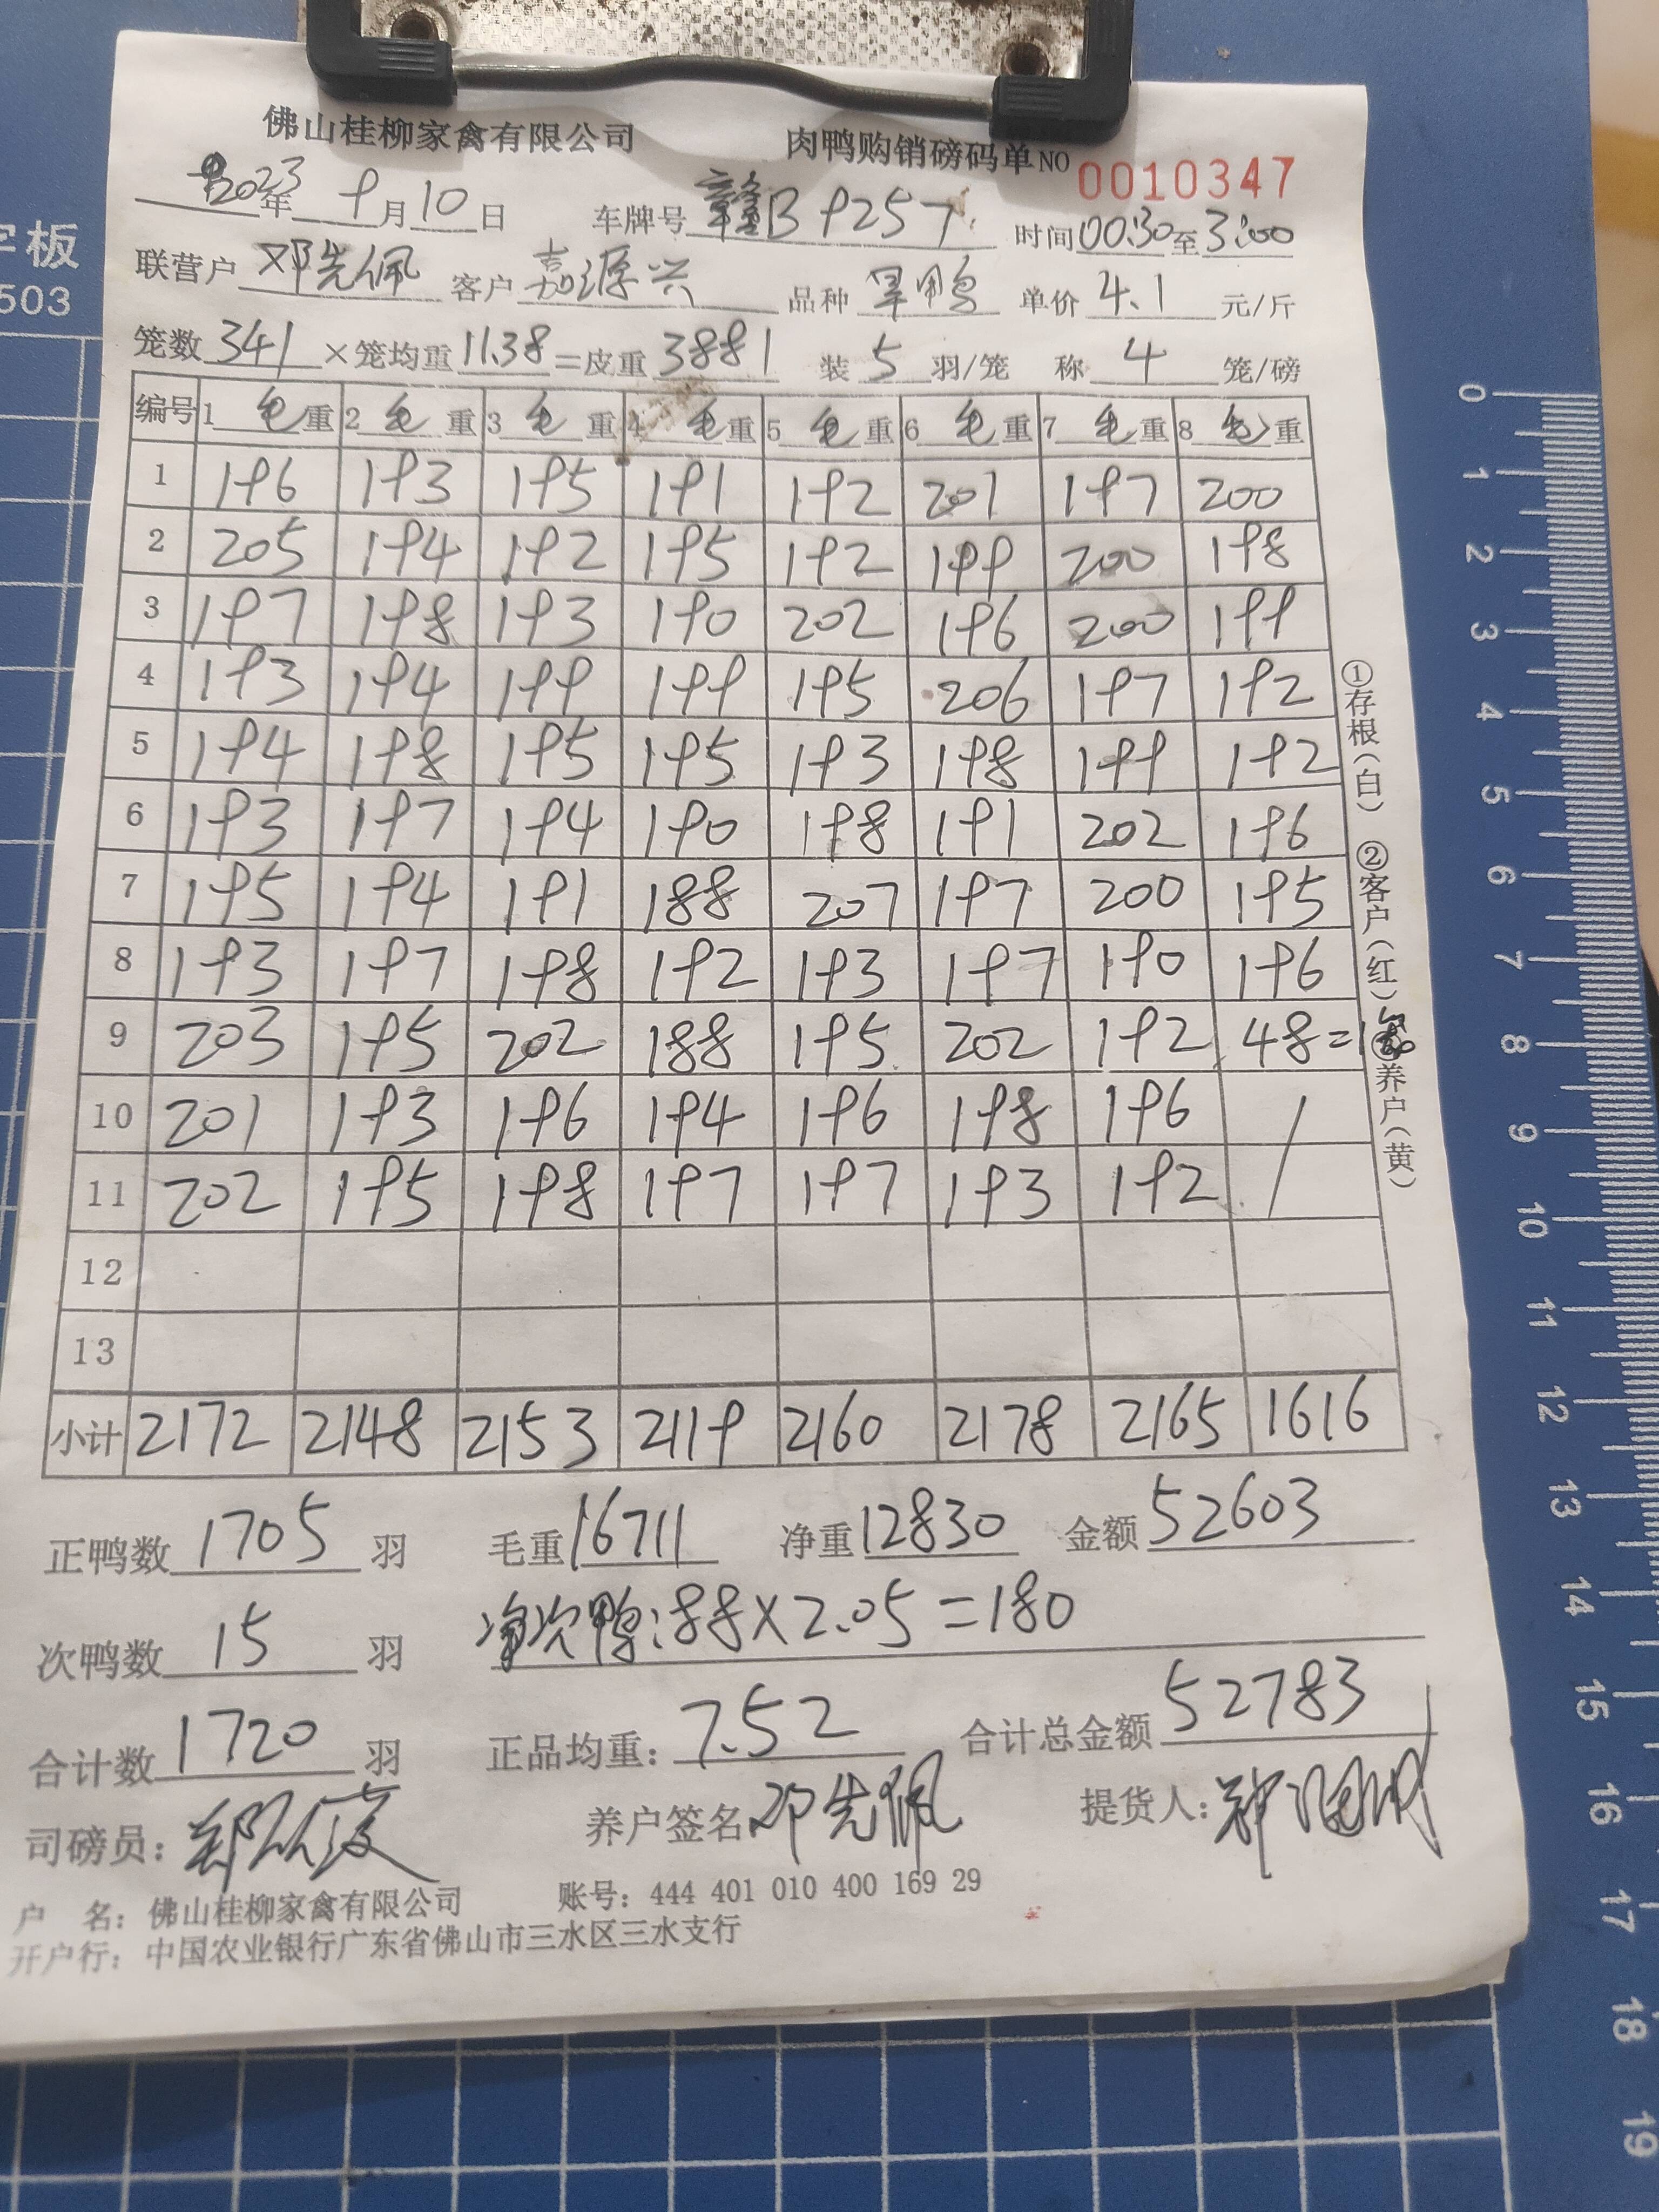 佛山桂柳家禽有限公司 肉鸭购销磅码单 NO 0010347
2023年 9月10日 车牌号 赣B9257 时间 00:30至3:00
联营户 邓先佩 客户 嘉源兴 品种 旱鸭 单价 4.1 元/斤
笼数 341 ×笼均重 11.38 =皮重 3881 装 5 羽/笼 称 4 笼/磅
编号 1 毛重 2 毛重 3 毛重 4 毛重 5 毛重 6 毛重 7 毛重 8 毛重
1 196 193 195 191 192 201 197 200
2 205 194 192 195 192 199 200 198
3 197 198 193 190 202 196 200 199
4 193 194 199 199 195 206 197 192
5 194 198 195 195 193 198 199 192
6 193 197 194 190 198 191 202 196
7 195 194 191 188 207 197 200 195
8 193 197 198 192 193 197 190 196
9 203 195 202 188 195 202 192 48=1
10 201 193 196 194 196 198 196 /
11 202 195 198 197 197 193 192 /
12
13
小计 2172 2148 2153 2119 2160 2178 2165 1616
正鸭数 1705 羽 毛重 16711 净重 12830 金额 52603
次鸭数 15 羽 净次鸭:88×2.05=180
合计数 1720 羽 正品均重: 7.52 合计总金额 52783
司磅员: 养户签名 邓先佩 提货人:
户 名: 佛山桂柳家禽有限公司 账号: 444 401 010 400 169 29
开户行: 中国农业银行广东省佛山市三水区三水支行
①存根(白) ②客户(红) 养户(黄)
字板
503
0
1
2
3
4
5
6
7
8
9
10
11
12
13
14
15
16
17
18
19